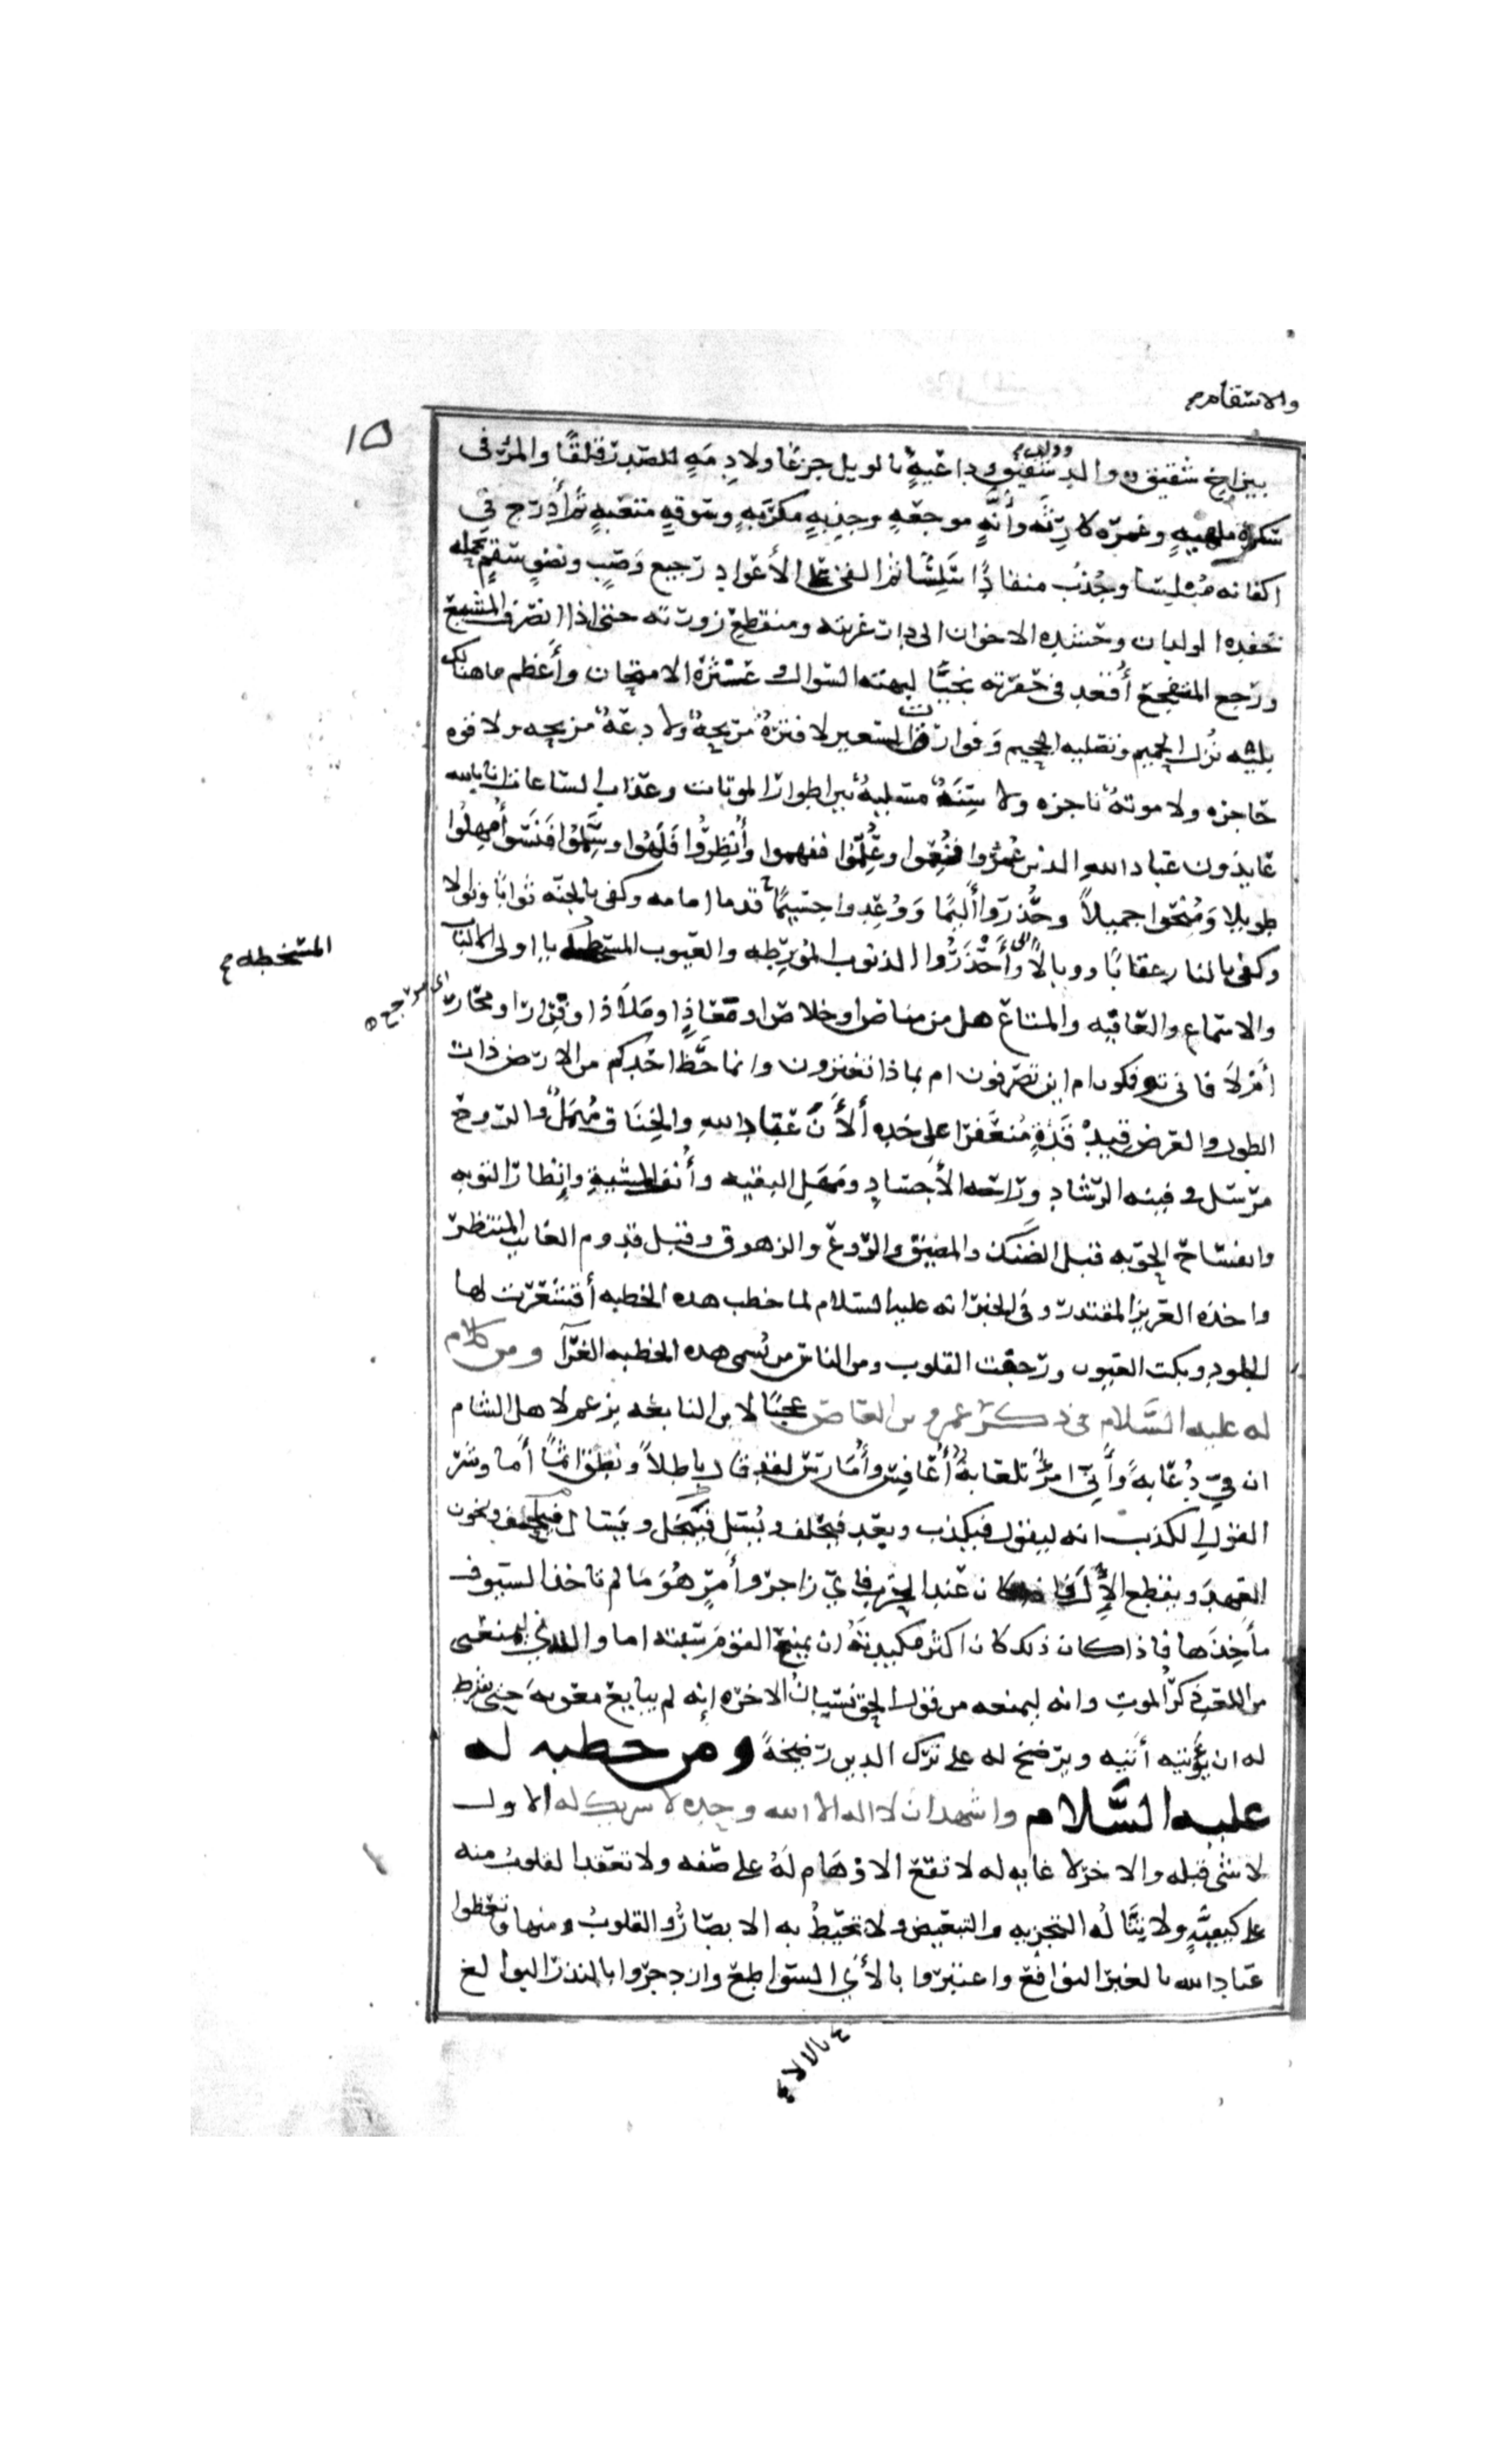 والاسقام
١٥
بين اخ شقيق ووالد شفيق وداعية بالويل جزعا ولادمة للصدر قلقا والمرء في
سكرة ملهية وغمرة كارثة وأنة موجعة وجذبة مكربة وسوقة متعبة ثم أدرج في
اكفانه مبلسا وجذب منقادا سلسا ثم القي على الأعواد رجيع وصب ونضو سقم تحمله
حفدة الولدان وحشدة الاخوان الى دار غربته ومنقطع زورته حتى اذا انصرف المشيع
ورجع المتفجع أقعد في حفرته نجيا لبهتة السؤال وعثرة الامتحان وأعظم ما هنالك
بلية نزل الحميم وتصلية الجحيم وفورات السعير لا فترة مريحة ولا دعة مزيحة ولا قوة
حاجزة ولا موتة ناجزة ولا سنة مسلية بين اطوار الموتات وعذاب الساعات انا بالله
عايذون عباد الله اين الذين عمروا فنعموا وعلموا ففهموا وأنظروا فلهوا وسلموا فنسوا أمهلوا
طويلا ومنحوا جميلا وحذروا أليما ووعدوا جسيما
المسخطة
وكفى بالنار عقابا ووبالا احذروا الذنوب المورطة والعيوب المسخطة يا اولي الالباب
اي مرجع
والاسماع والعافية والمتاع هل من مناص او خلاص او معاذ او ملاذ او قرار او محار
أم لا فانى تؤفكون ام اين تصرفون ام بماذا تغترون وانما حظ احدكم من الارض ذات
الطول والعرض قيد قده متعفرا على خده ألأن عباد الله والخناق مهمل والروح
مرسل في فينة الرشاد وراحة الأجساد ومهل البقية وأنف المشية وإنظار التوبة
وانفساح الحوبة قبل الضنك والمضيق والروع والزهوق وقبل قدوم الغائب المنتظر
واخذة العزيز المقتدر وفي الخبر انه عليه السلام لما خطب هذه الخطبة أقشعرت لها
الجلود وبكت العيون ورجفت القلوب ومن الناس من يسمى هذه الخطبة الغرآ ومن كلام
له عليه السلام في ذكر عمرو بن العاص عجبا لابن النابغة يزعم لاهل الشام
ان في دعابة وأني امرؤ تلعابة أعافس وأمارس لقد قال باطلا ونطق اثما أما وشر
القول الكذب انه ليقول فيكذب ويعد فيخلف ويسئل فيبخل ويسال فيلحف ويخون
العهد ويقطع الإل فاذا كان عند الحرب فاي زاجر وأمر هو ما لم تاخذ السيوف
مأخذها فاذا كان ذلك كان اكبر مكيدته ان يمنح القوم سبته اما والله اني ليمنعني
من اللعب ذكر الموت وانه ليمنعه من قول الحق نسيان الاخرة إنه لم يبايع معوية حتى شرط
له ان يؤتيه أتية ويرضخ له على ترك الدين رضيخة ومن خطبة له
عليه السلام واشهد ان لا اله الا الله وحده لا شريك له الاول
لا شي قبله والاخر لا غاية له لا تقع الاوهام له على صفة ولا تعقد القلوب منه
على كيفية ولا تناله التجزية والتبعيض ولا تحيط به الابصار والقلوب ومنها فاتعظوا
عباد الله بالعبر النوافع واعتبروا بالأي السواطع وازدجروا بالنذر البوالغ